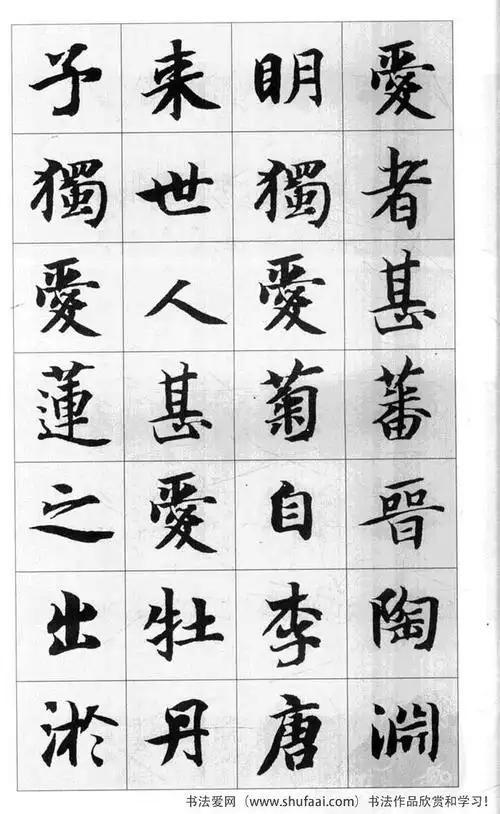 愛者甚蕃晉陶淵
明獨愛菊自李唐
来世人甚愛牡丹
予獨愛蓮之出淤
书法爱网（www.shufaai.com）书法作品欣赏和学习！